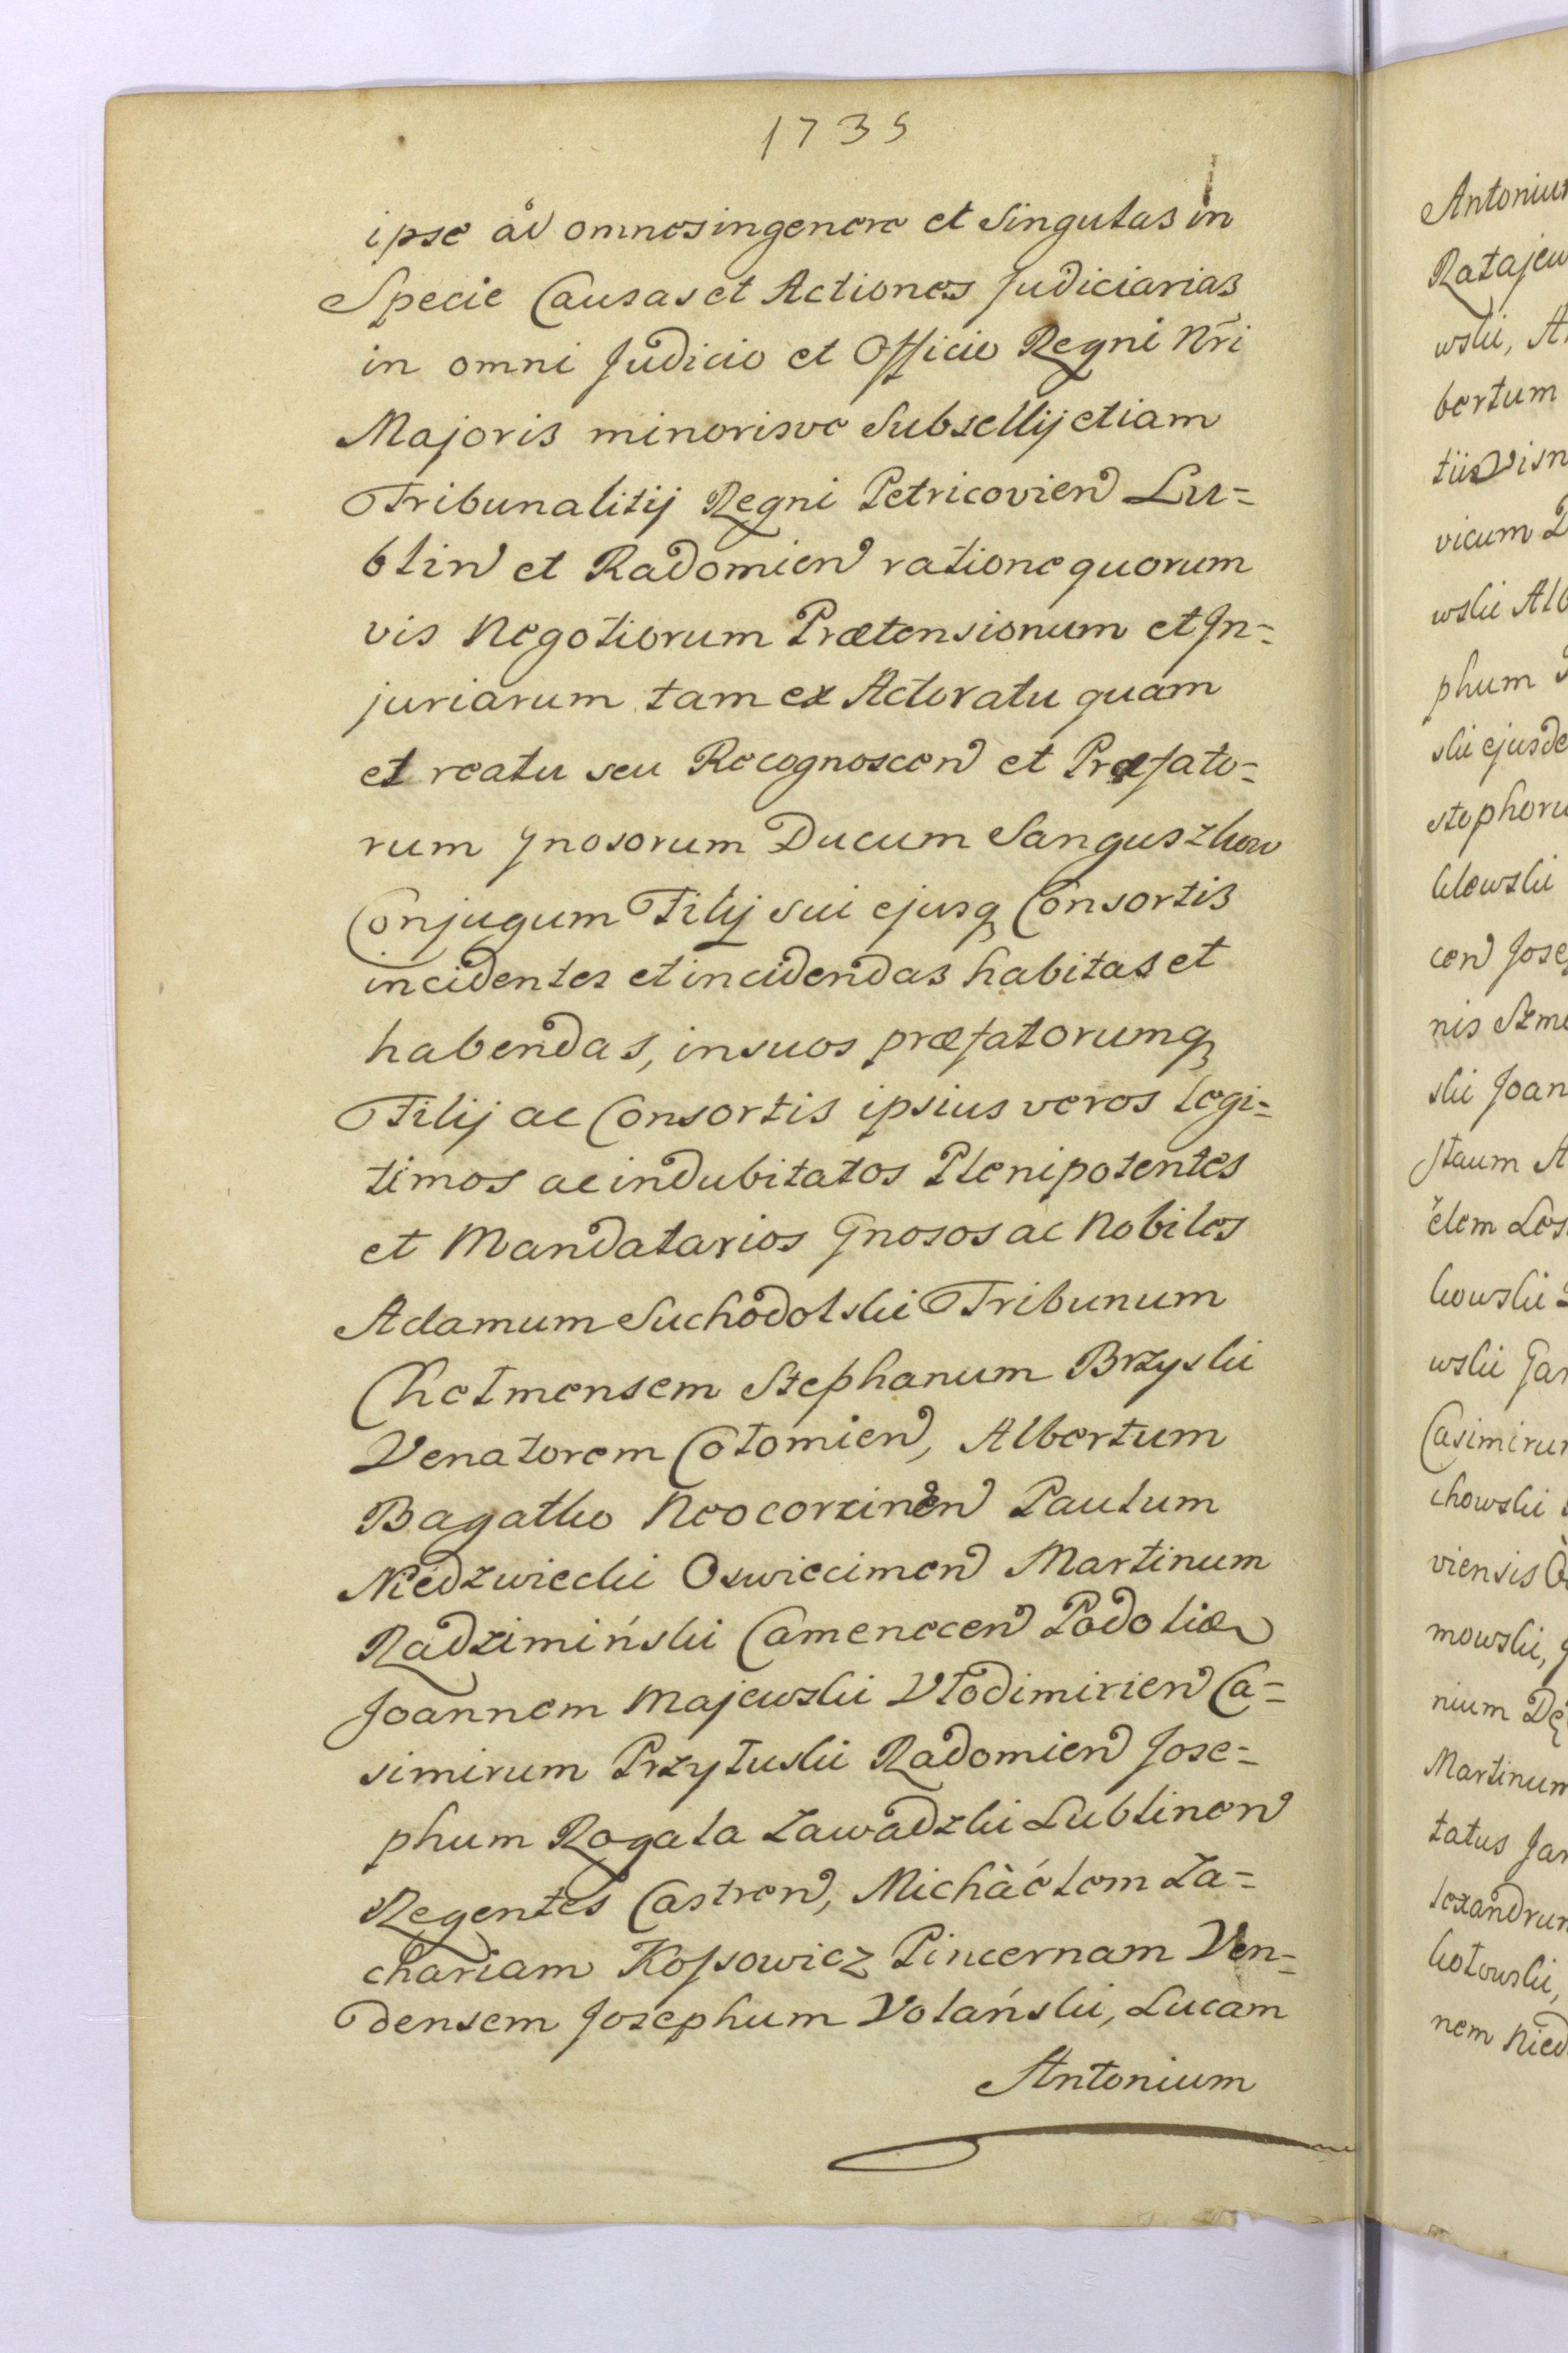 1735
ipse ad omnes ingenere et Singulas in
Specie Causas et Actiones Judiciarias
in omni Judicio et Officio Regni Nri
Majoris minorisve Subsellij etiam
Tribunalitij Regni Petricovien Lu=
blin et Radomien ratione quorum
vis Negotiorum Prætensionum et In=
juriarum tam ex Actoratu quam
et reatu seu Recognoscen et Præfato=
rum Gnosorum Ducum Sanguszkow
Conjugum Filij sui ejusq Consortis
incidentes et incidendas habitas et
habendas, in suos præfatorumq
Filij ac Consortis ipsius veros legi=
timos ac indubitatos Plenipotentes
et Mandatarios Gnosos ac Nobiles
Adamum Suchodolski Tribunum
Chełmensem Stephanum Brzyski
Venatorem Cołomien, Albertum
Bagatko Neocorzinen Paulum
Niedzwiecki Oswiecimen Martinum
Radzimiński Camenecen Podoliæ
Joannem Majewski Vłodimirien Ca=
simirum Przyłuski Radomien Jose=
phum Rogala Zawadzki Lublinen
Regentes Castren, Michàélem Za=
chariam Kossowicz Pincernam Ven=
densem Josephum Volański, Lucam
Antonium
Ratajew
wski, A
bertum
vicum
wski Alb
phum
ski ejusde
stophoru
klewski
cen Jose
nis Szme
ski Joan
staum A
èlem Les
kowski
wski Jan
Casimirum
chowski
viensis
mowski,
nium Dę
Martinum
tatus Jan
lexandrum
kotowski,
nem Nied